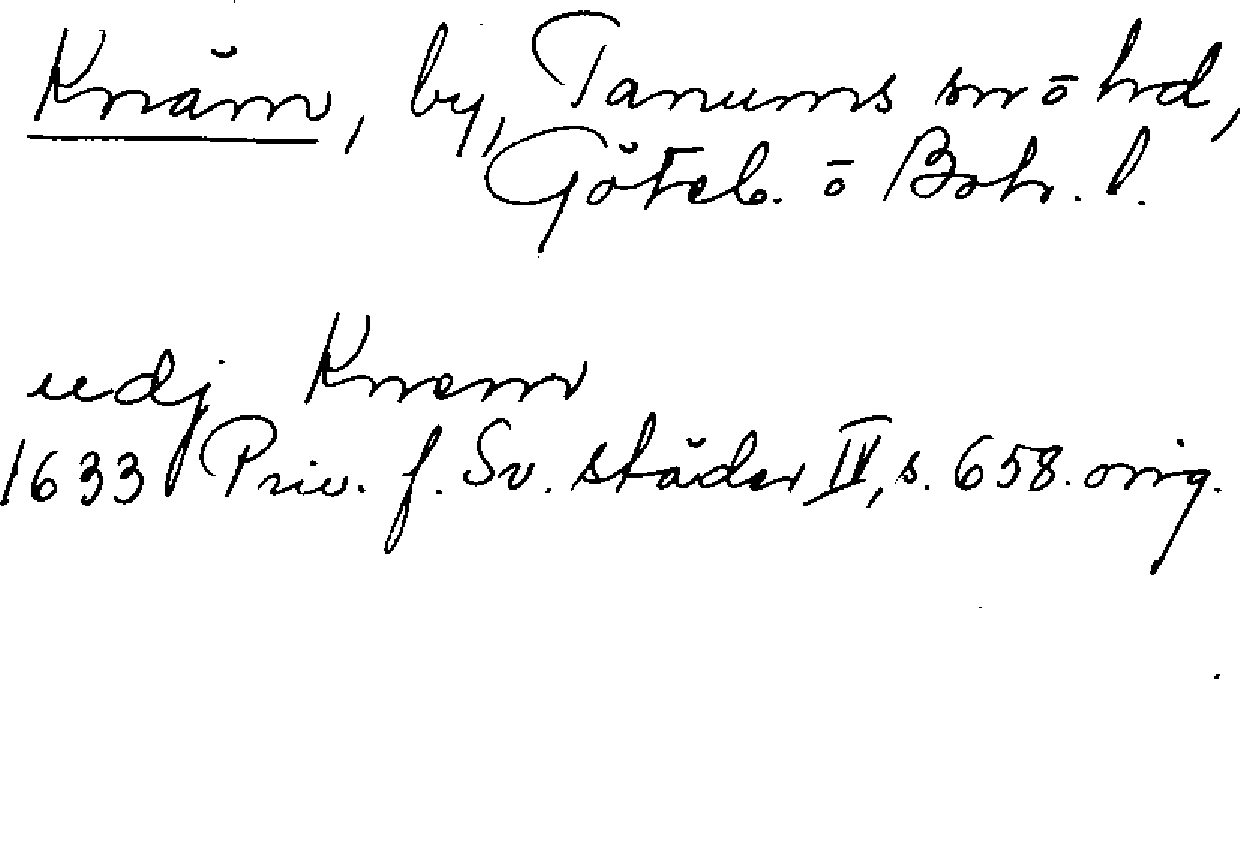 Knäm, by, Tanums sn ō hd,
Göteb. ō Boh. l.
udj Knem
1633 Priv. f. Sv. städer IV, s. 658. orig.